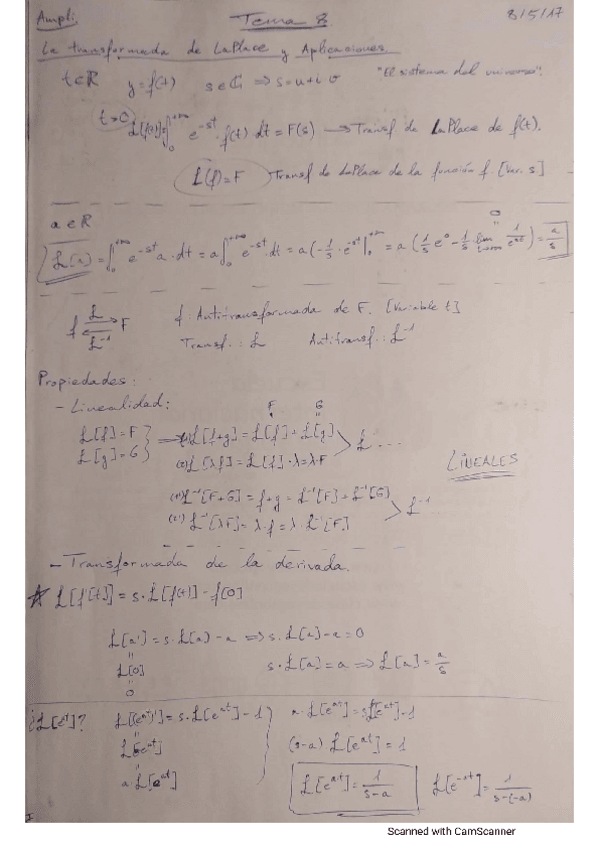 Ampli. Tema 8. 8/5/17
La transformada de LaPlace y Aplicaciones.
t∈ℝ y=f(t) s∈ℂ ⇒ s=u+iσ "El sistema del universo".
t>0 ℒ[f(t)]=∫₀^{+∞} e^{-st}·f(t) dt = F(s) → Transf de LaPlace de f(t).
ℒ(f)=F Transf de LaPlace de la función f. [Var. s]
a∈ℝ
ℒ[a]=∫₀^{+∞} e^{-st} a·dt = a∫₀^{+∞} e^{-st} dt = a(-1/s·e^{-st}|₀^{+∞} = a(1/s e⁰ - 1/s lim 1/e^{st}) = a/s
0
f ⇄ F f: Antitransformada de F. [Variable t]
ℒ ℒ⁻¹ Transf.: ℒ Antitransf.: ℒ⁻¹
Propiedades:
- Linealidad: F G
ℒ[f]=F ⇒ (1) ℒ[f+g]=ℒ[f]+ℒ[g] ℒ ...
ℒ[g]=G (2) ℒ[λf]=ℒ[f]·λ=λ·F LINEALES
(1') ℒ⁻¹[F+G]=f+g=ℒ⁻¹[F]+ℒ⁻¹[G] ℒ⁻¹
(2') ℒ⁻¹[λF]=λ·f=λ·ℒ⁻¹[F]
- Transformada de la derivada.
ℒ[f'[t]]=s·ℒ[f(t)]-f[0]
ℒ[a']=s·ℒ[a]-a ⇒ s·ℒ[a]-a=0
ℒ[0] s·ℒ[a]=a ⇒ ℒ[a]=a/s
0
¿ℒ[e^{at}]? ℒ[(e^{at})']=s·ℒ[e^{at}]-1 a·ℒ[e^{at}]=sℒ[e^{at}]-1
ℒ[ae^{at}] (s-a)ℒ[e^{at}]=1
a·ℒ[e^{at}] ℒ[e^{at}]=1/(s-a) ℒ[e^{-at}]=1/(s-(-a))
Scanned with CamScanner